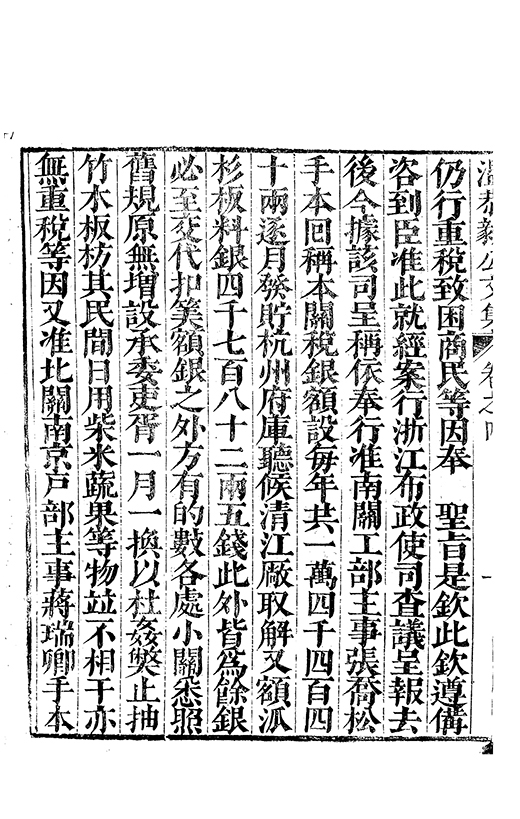 溫恭毅公文集 卷之四 一
仍行重稅致困商民等因奉　聖旨是欽此欽遵備
咨到臣准此就經案行浙江布政使司查議呈報去
後今據該司呈稱依奉行准南關工部主事張喬松
手本回稱本關稅銀額設每年共一萬四千四百四
十兩逐月發貯杭州府庫聽候清江廠取解又額派
杉板料銀四千七百八十二兩五錢此外皆爲餘銀
必至交代扣筭額銀之外方有的數各處小關悉照
舊規原無增設承委吏胥一月一換以杜姦弊止抽
竹木板枋其民間日用柴米蔬果等物並不相干亦
無重稅等因又准北關南京戶部主事蔣瑞卿手本